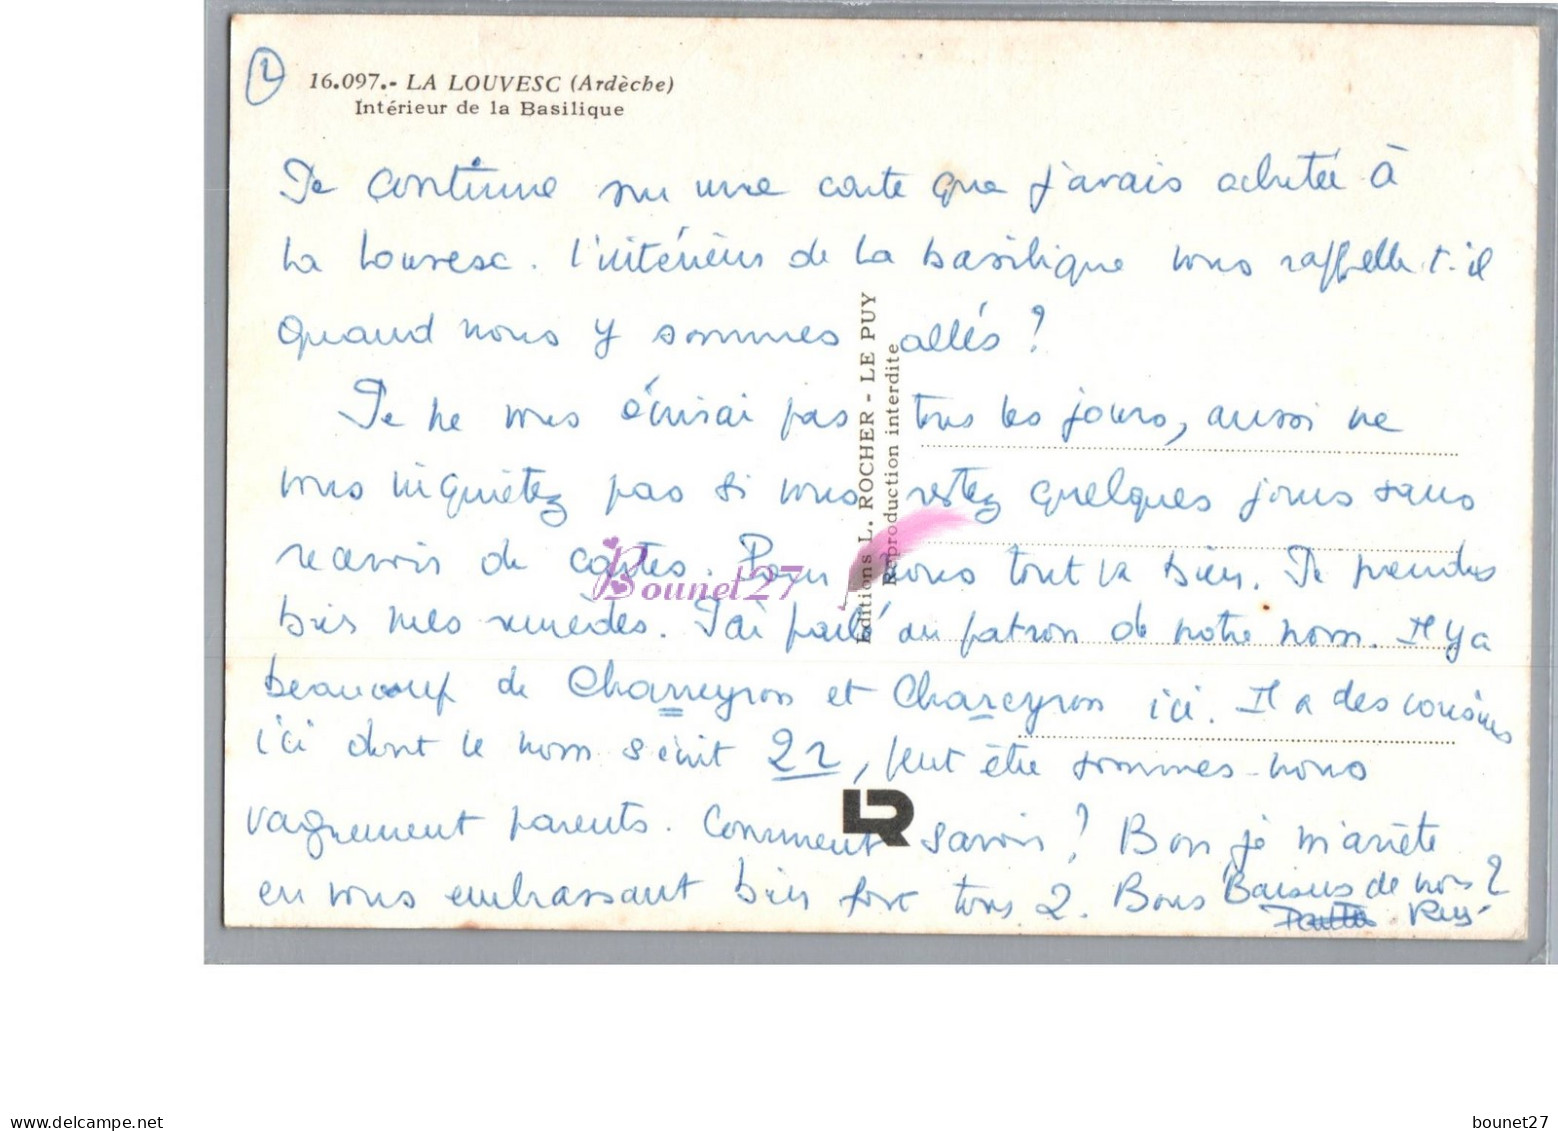 2
16.097.- LA LOUVESC (Ardèche)
Intérieur de la Basilique
Je continue sur une carte que j'avais achetée à
la Louvesc. l'intérieur de la basilique vous rappelle t-il
quand nous y sommes allés ?
Je ne vous écrirai pas tous les jours, aussi ne
vous inquiétez pas si vous restez quelques jours sans
recevoir de cartes. Pour nous tout va bien. Je prends
bien mes remèdes. J'ai parlé au patron de notre nom. Il y a
beaucoup de Charreyron et Chareyron ici. Il a des cousins
ici dont le nom s'écrit 2 r, peut être sommes-nous
vaguement parents. Comment savoir ? Bon je m'arrête
en vous embrassant bien fort tous 2. Bons Baisers de nous 2
Editions L. ROCHER - LE PUY
Reproduction interdite
LR
Bounet27
www.delcampe.net
bounet27